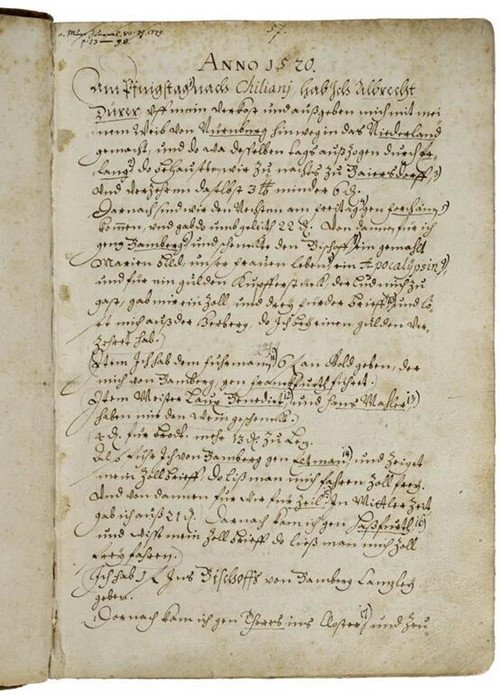 57.
ANNO 1520.
Am Pfingstag nach Chiliani hab Ich Albrecht
Dürer uff mein verkost und außgeben mich mit mei
nem Weib von Nürnberg hinweg in das Niderland
gemacht, und do wir desselben tags außzogen durch Er-
lang do behausten wir zu nachts zu Baiersdorff
und verzehrten daselbst 3 minder 6 d.
Darnach sind wir den nechsten am freitag gen Forchaim
kommen, und gab do umb geleith 22 d. Von dannen fuhr ich
gen Bamberg und schenckte den Bischoff ein gemahlt
Marien bild, unser frauen leben, ein Apocalypsin
und für ein gulden Kupfferstuck, der lud mich zu
gast, gab mir ein Zoll und drey fürder brieff und lö-
set mich auß der Herberg, do Ich bey einen gulden ver
zehret hab.
Item Ich hab dem fuhrmann 6 f. an Gold geben, der
mich von Bamberg gen Franckfurth führet.
Item Meister Laux Benedict und Hans Mahler
haben mir den Wein geschenckt.
4 d. für brodt. mehr 13 d. zu lez.
Also fuhr Ich von Bamberg gen Eltman und zeiget
mein Zollbrieff do ließ man mich fahren Zoll frey.
Und von dannen fuhr wir für Zeil. In mittler Zeit
gab ich auß 21 d. Darnach kam ich gen Haßfurth
und wiß mein Zollbrieff do ließ man mich Zoll
frey fahren.
Ich hab 1 f. Ins Bischoffs von Bamberg Canzley
geben.
Darnach kam ich gen Theres ins Closter und zeu-